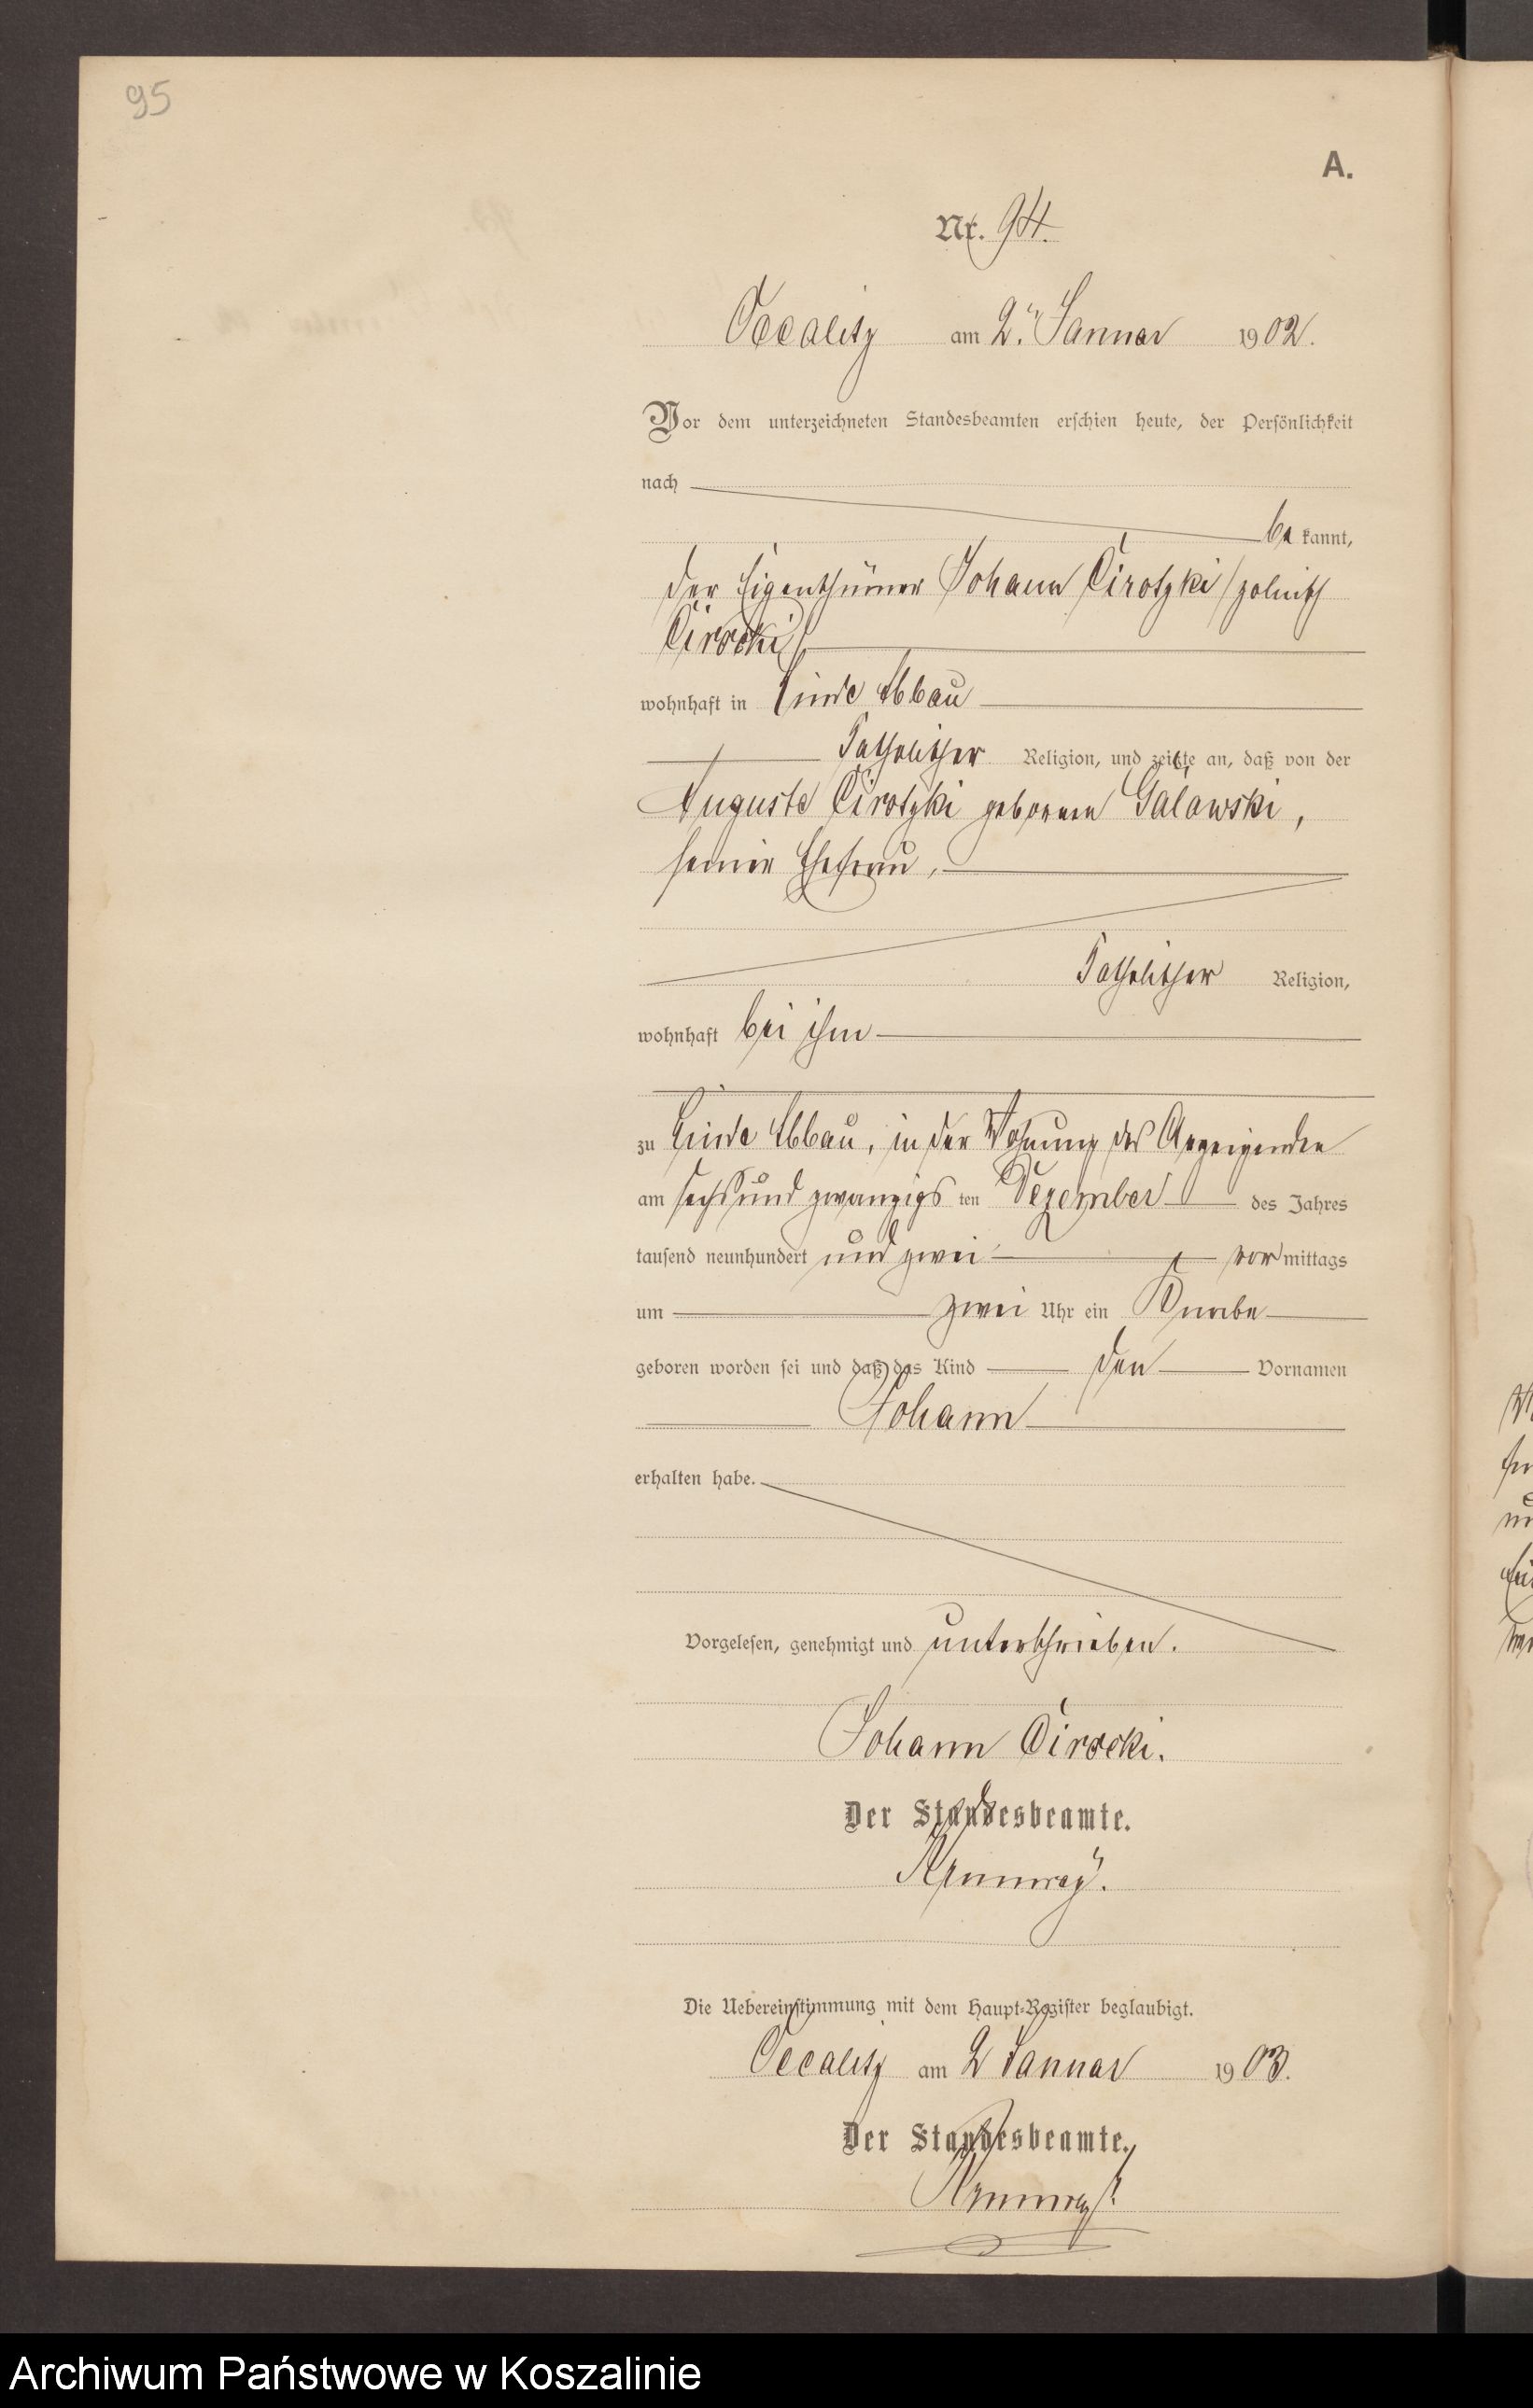 95
A.
Nr. 94.
Occalitz am 2. Januar 1902.
Vor dem unterzeichneten Standesbeamten erschien heute, der Persönlichkeit
nach
be kannt,
der Eigenthümer Johann Cirotzki (polnisch
Cirocki)
wohnhaft in Linde Abbau
katholischer Religion, und zeigte an, daß von der
Auguste Cirotzki geborenen Galawski,
seiner Ehefrau,
katholischer Religion,
wohnhaft bei ihm
zu Linde Abbau, in der Wohnung des Anzeigenden
am sechsundzwanzigs ten Dezember des Jahres
tausend neunhundert und zwei vor mittags
um zwei Uhr ein Knabe
geboren worden sei und daß das Kind den Vornamen
Johann
erhalten habe.
Vorgelesen, genehmigt und unterschrieben.
Johann Cirocki.
Der Standesbeamte.
Die Uebereinstimmung mit dem Haupt-Register beglaubigt.
Occalitz am 2 Januar 1903.
Der Standesbeamte.
Archiwum Państwowe w Koszalinie